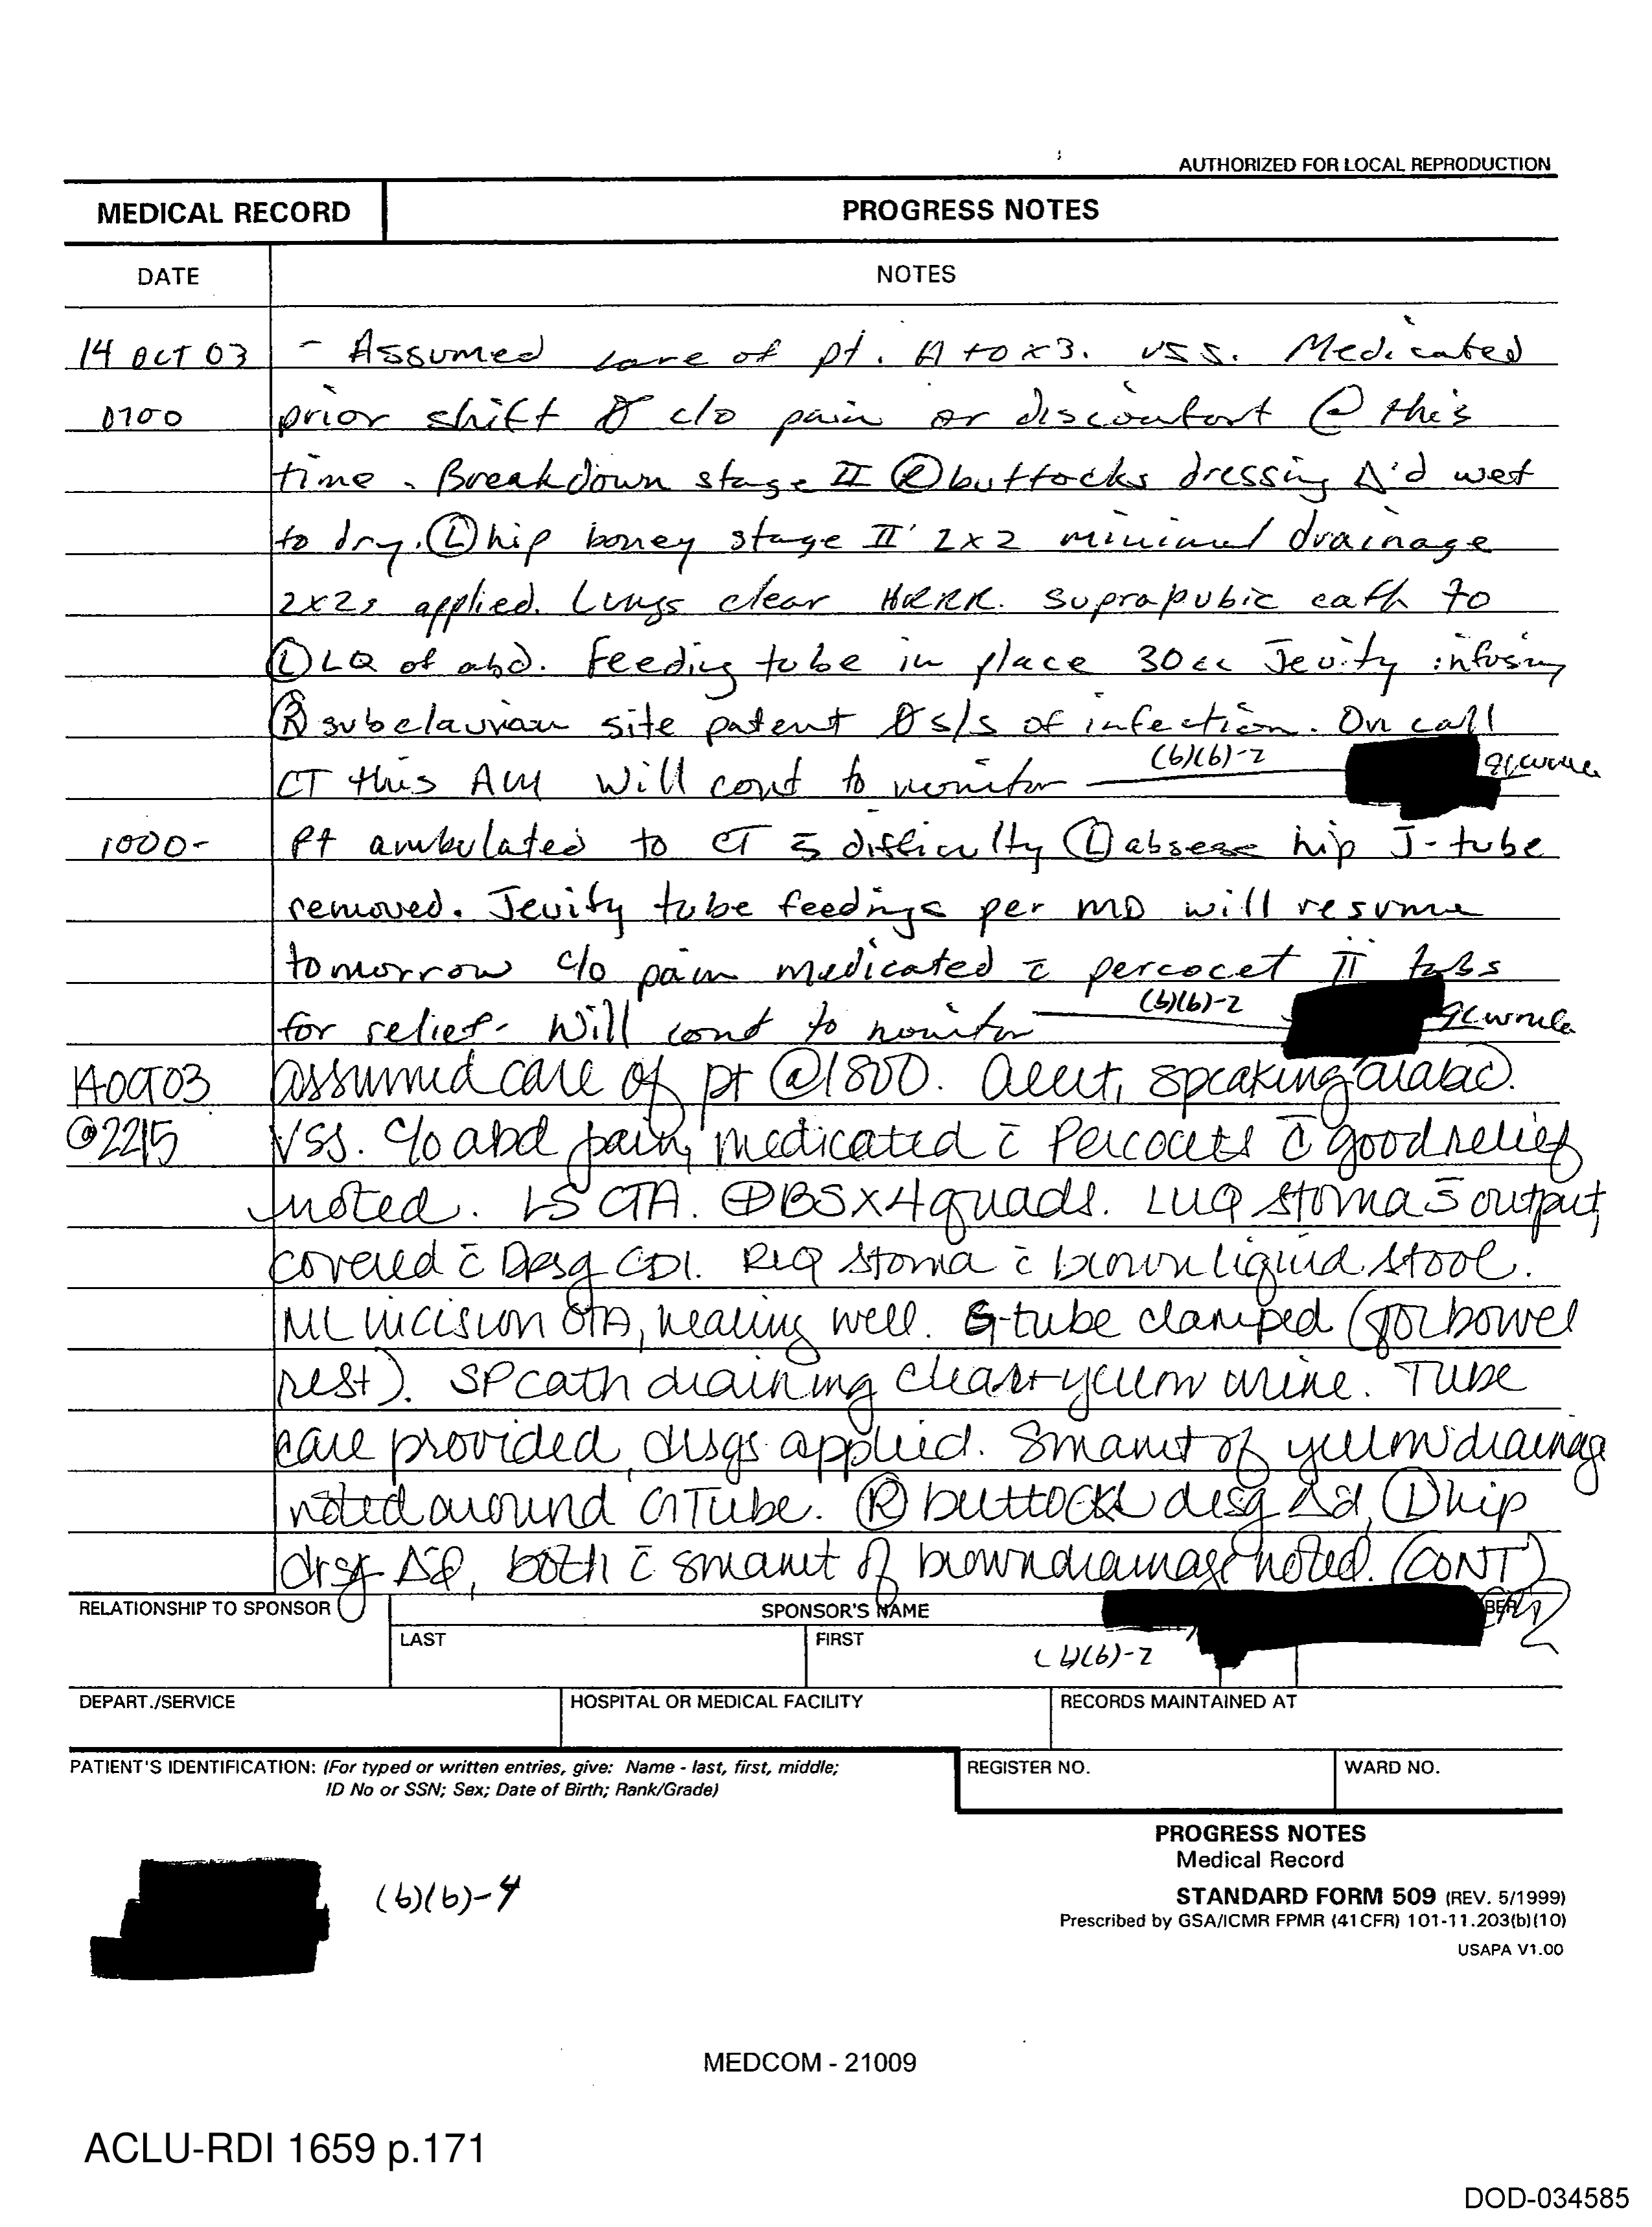 AUTHORIZED FOR LOCAL REPRODUCTION
MEDICAL RECORD PROGRESS NOTES
DATE NOTES
14 OCT 03 - Assumed care of pt. A+O x3. VSS. Medicated
0700 prior shift Ø c/o pain or discomfort @ this
time. Breakdown stage II Ⓡ buttocks dressing Δ'd wet
to dry. Ⓛ hip boney stage II 2x2 minimal drainage
2x2s applied. Lungs clear HRRR. Suprapubic cath to
Ⓛ LQ of abd. Feeding tube in place 30cc Jevity infusing
Ⓡ subclavian site patent Ø s/s of infection. On call
CT this AM Will cont to monitor (b)(6)-2
1000- Pt ambulated to CT s̄ difficulty Ⓛ absess hip J-tube
removed. Jevity tube feedings per MD will resume
tomorrow c/o pain medicated c̄ percocet II tabs
for relief- Will cont to monitor (b)(6)-2
14OCT03 assumed care of pt @1800. Alert, speaking arabic.
@2215 VSS. c/o abd pain, medicated c̄ Percocets c̄ good relief
noted. LS CTA. ⊕BSx4quads. LUQ stoma s̄ output,
covered c̄ Drsg CDI. RLQ stoma c̄ brown liquid stool.
ML incision OTA, healing well. G-tube clamped (for bowel
rest). SP cath draining clear yellow urine. Tube
care provided, drsgs applied. Sm amt of yellow drainage
noted around GTube. Ⓡ buttock drsg Δd, Ⓛ hip
drsg Δd, both c̄ sm amt of brown drainage noted. (CONT)
RELATIONSHIP TO SPONSOR SPONSOR'S NAME
LAST FIRST (b)(6)-2
DEPART./SERVICE HOSPITAL OR MEDICAL FACILITY RECORDS MAINTAINED AT
PATIENT'S IDENTIFICATION: (For typed or written entries, give: Name - last, first, middle;
ID No or SSN; Sex; Date of Birth; Rank/Grade)
REGISTER NO. WARD NO.
PROGRESS NOTES
Medical Record
STANDARD FORM 509 (REV. 5/1999)
Prescribed by GSA/ICMR FPMR (41CFR) 101-11.203(b)(10)
USAPA V1.00
(b)(6)-4
MEDCOM - 21009
ACLU-RDI 1659 p.171
DOD-034585